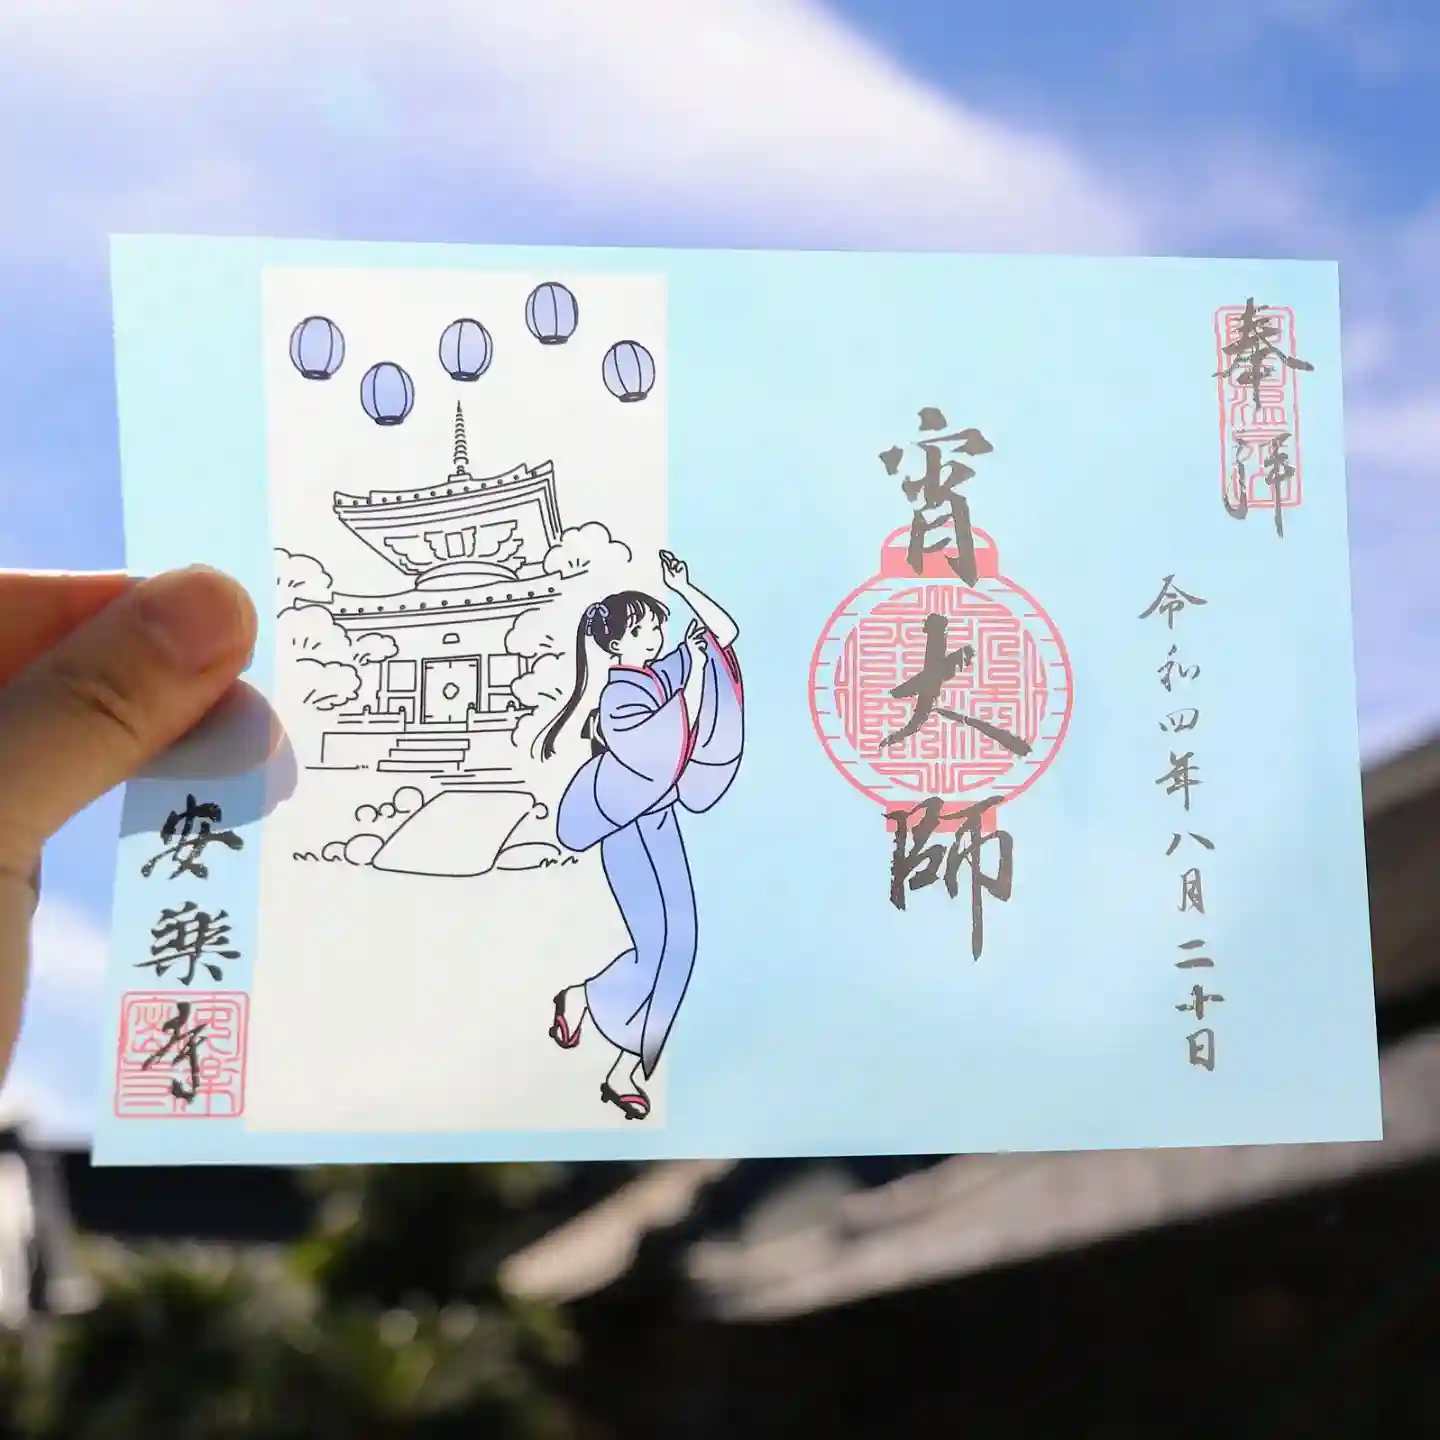 奉拝
令和四年八月二十日
宵大師
安楽寺